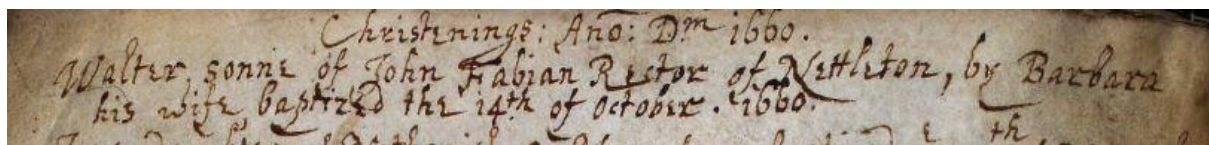 Christenings: Ano: Dm 1660.
Walter, sonne of John Fabian Rector of Nettleton, by Barbara
his wife, baptized the 14th of October. 1660.